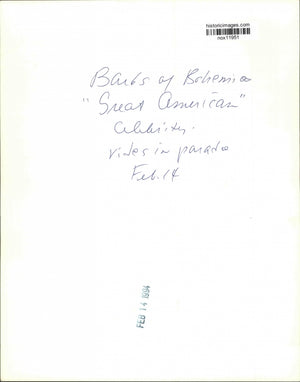 historicimages.com
nox11951
Barbs of Bohemia
"Great American"
Celebrity.
rides in parade
Feb. 14
FEB 14 1994